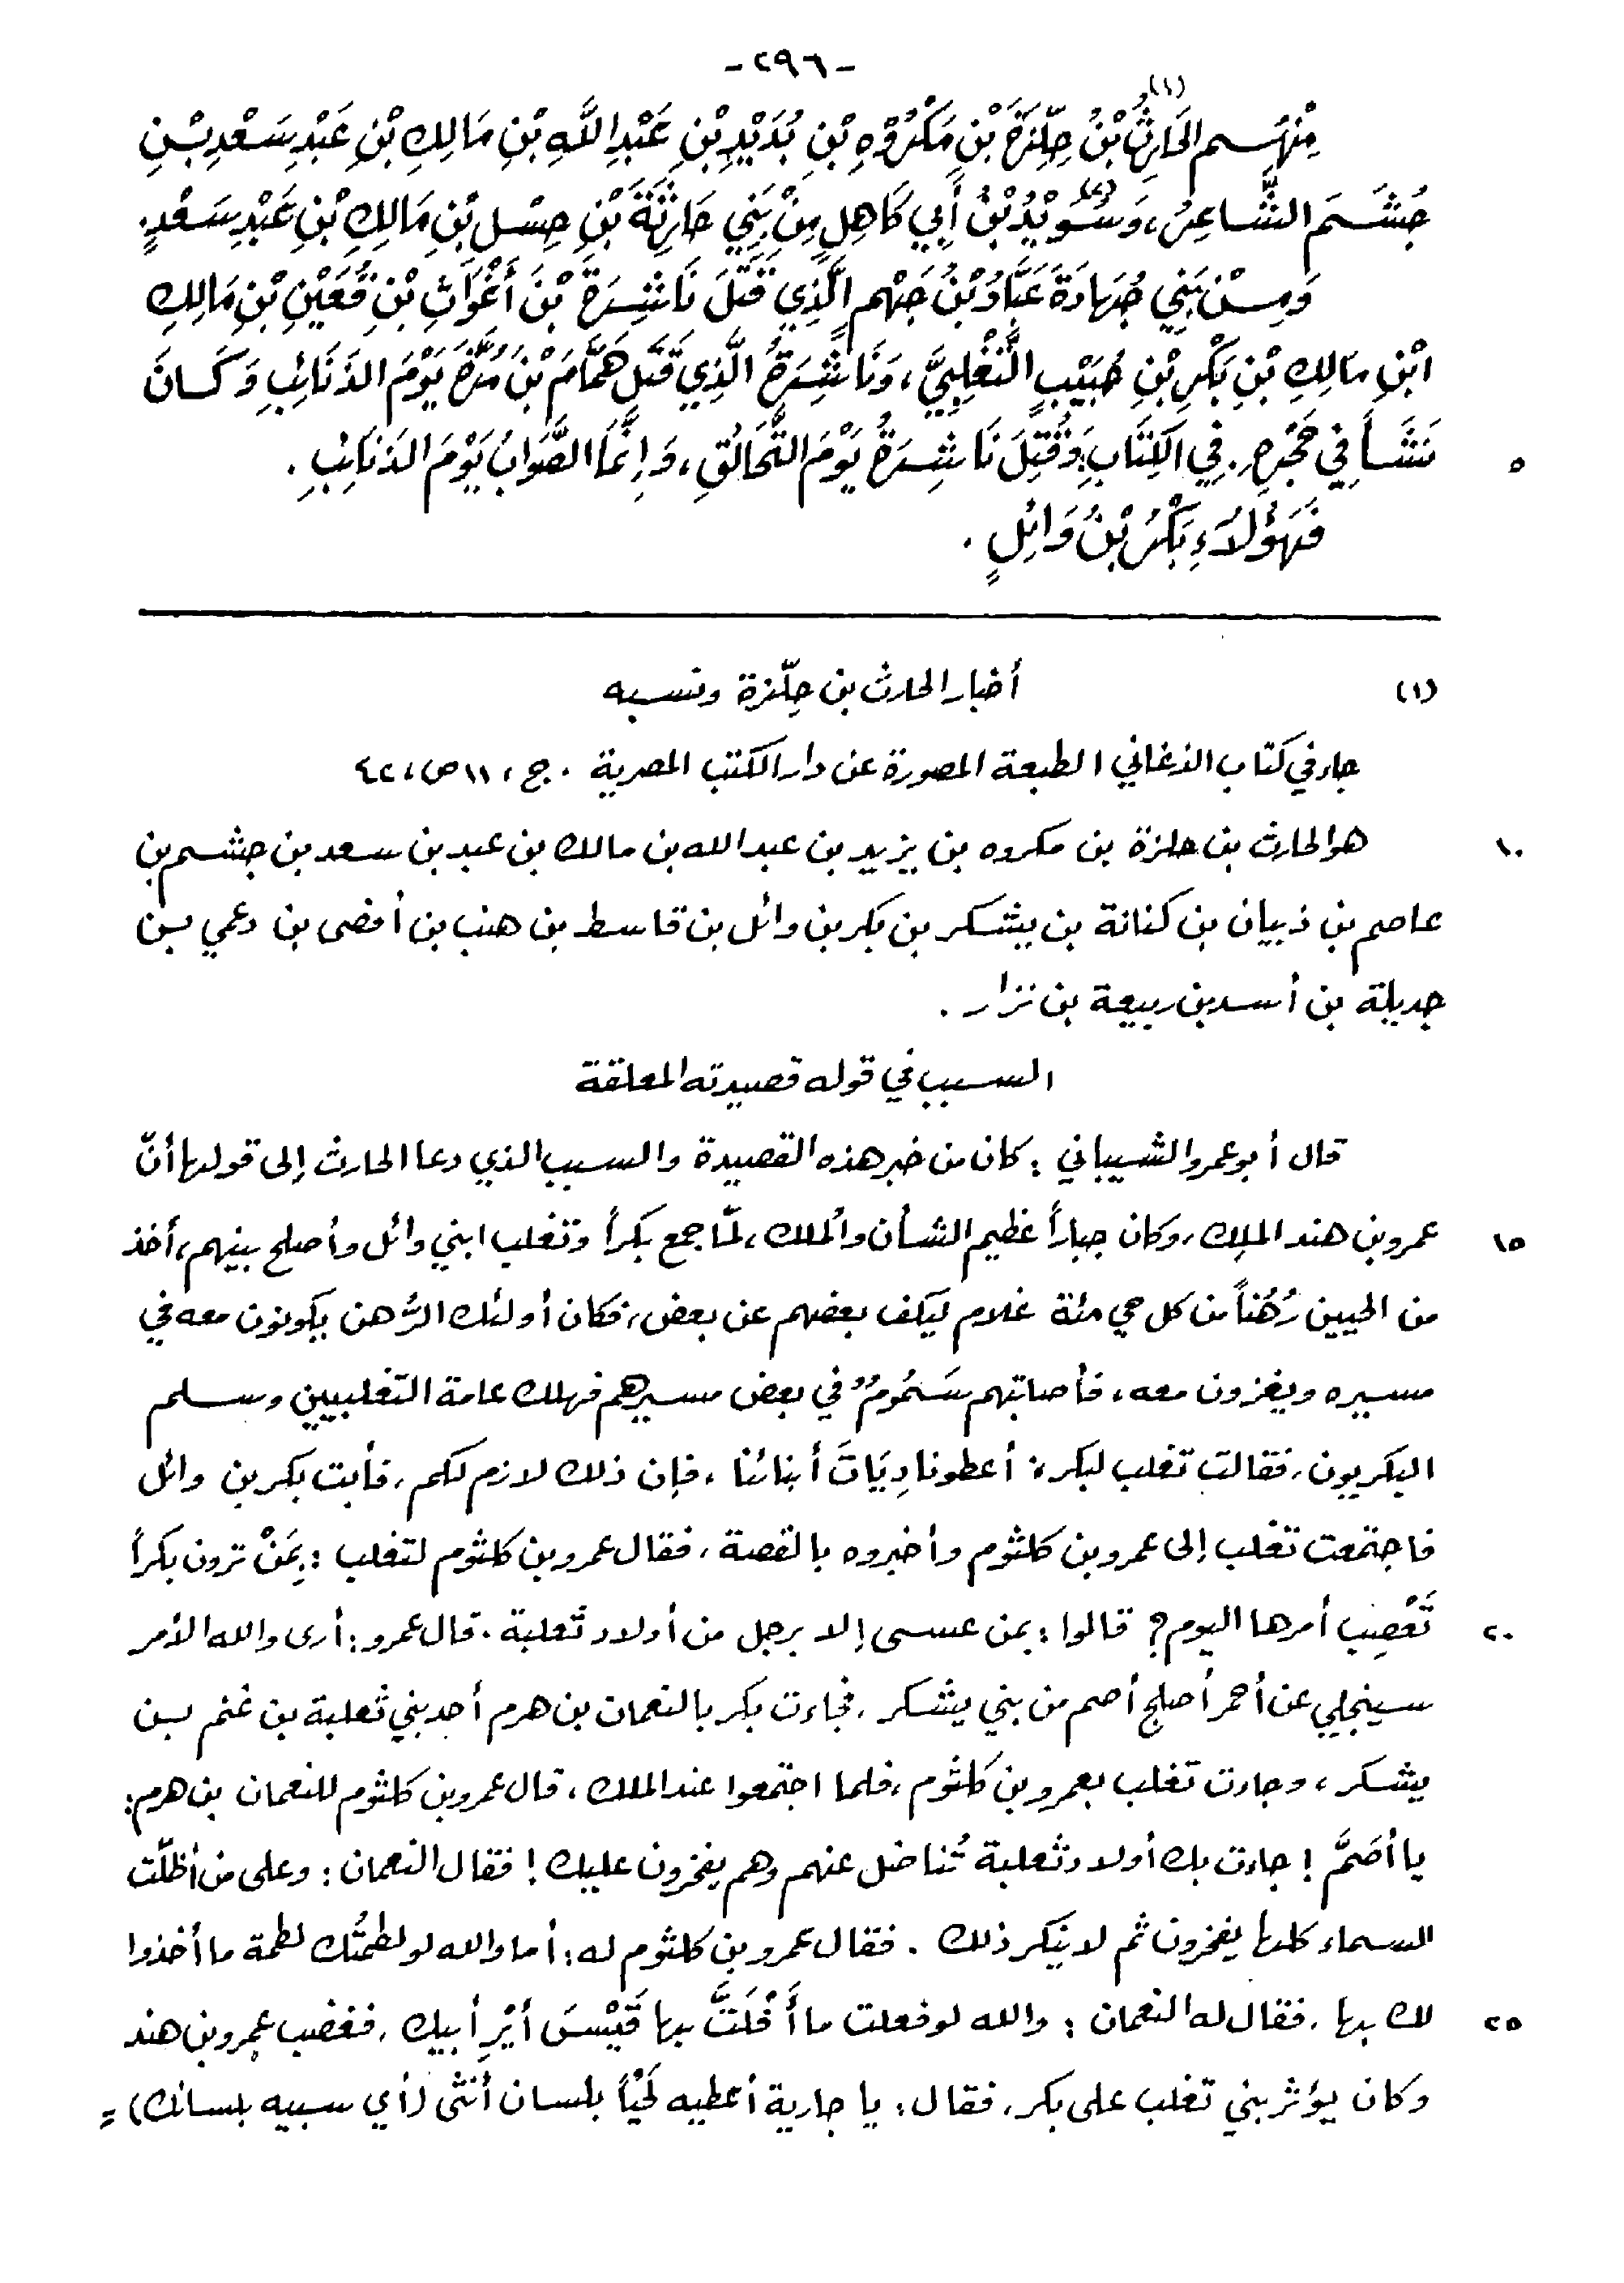 -٢٩٦-
مِنْهُم الحَارِثُ (١) بْنُ حِلِّزَةَ بْنِ مَكْرُوْهِ بْنِ بُدَيْدِ بْنِ عَبْدِ اللَّهِ بْنِ مَالِكِ بْنِ عَبْدِ سَعْدِ بْنِ
جُشَمَ الشَّاعِرُ، وَسُوَيْدُ (٢) بْنُ أَبِي كَاهِلٍ مِنْ بَنِي حَارِثَةَ بْنِ حِسْلِ بْنِ مَالِكِ بْنِ عَبْدِ سَعْدٍ.
وَمِنْ بَنِي جُهَادَةَ عَبَّادُ بْنُ جَهْمٍ الَّذِي قَتَلَ نَاشِرَةَ بْنَ أَغْوَاثِ بْنِ قُعَيْنِ بْنِ مَالِكِ
ابْنِ مَالِكِ بْنِ بَكْرِ بْنِ حُبَيْبٍ التَّغْلِبِيَّ، وَنَاشِرَةُ الَّذِي قَتَلَ هَمَّامَ بْنَ مُرَّةَ يَوْمَ الذَنَائِبِ وَكَانَ
نَشَأَ فِي حَجْرِهِ. فِي الكِتَابِ: وَقُتِلَ نَاشِرَةُ يَوْمَ التَّحَالُقِ، وَإِنَّمَا الصَّوَابُ يَوْمَ الذَنَائِبِ.
٥
فَهَؤُلَاءِ بَكْرُ بْنُ وَائِلٍ.
(١) أخبار الحارث بن حِلّزة ونسبه
جاء في كتاب الأغاني الطبعة المصورة عن دار الكتب المصرية . ج، ١١ ص، ٤٢
١٠ هو الحارث بن حلزة بن مكروه بن يزيد بن عبد الله بن مالك بن عبد بن سعد بن جشم بن
عاصم بن ذبيان بن كنانة بن يشكر بن بكر بن وائل بن قاسط بن هنب بن أفصى بن دعمي بن
جديلة بن أسد بن ربيعة بن نزار .
السبب في قوله قصيدته المعلقة
قال أبو عمرو الشيباني : كان من خبر هذه القصيدة والسبب الذي دعا الحارث إلى قولها أنّ
١٥ عمرو بن هند الملِك، وكان جباراً عظيم الشأن والملك، لمّا جمع بكراً وتغلب ابني وائل وأصلح بينهم، أخذ
من الحيين رُهُناً من كل حي مئة غلام ليكف بعضهم عن بعض، فكان أولئك الرُّهن يكونون معه في
مسيره ويغزون معه، فأصابتهم سَمُومٌ في بعض مسيرهم فهلك عامة التغلبيين وسلم
البكريون، فقالت تغلب لبكر: أعطونا دِيَاتَ أبنائنا، فإن ذلك لازم لكم، فأبت بكر بن وائل
فاجتمعت تغلب إلى عمرو بن كلثوم وأخبروه بالقصة، فقال عمرو بن كلثوم لتغلب : بِمَنْ ترون بكراً
٢٠ تَعْصِب أمرها اليوم؟ قالوا : بمن عسى إلا برجل من أولاد ثعلبة . قال عمرو : أرى والله الأمر
سينجلي عن أحمر أصلج أصم من بني يشكر، فجاءت بكر بالنعمان بن هرم أحد بني ثعلبة بن غنم بن
يشكر، وجاءت تغلب بعمرو بن كلثوم، فلما اجتمعوا عند الملك، قال عمرو بن كلثوم للنعمان بن هرم:
يا أصَمُّ ! جاءت بك أولاد ثعلبة تُناضل عنهم وهم يفخرون عليك ! فقال النعمان : وعلى من أظلّت
السماء كلها يفخرون ثم لا ينكر ذلك . فقال عمرو بن كلثوم له : أما والله لو لطمتُك لطمة ما أخذوا
٢٥ لك بها، فقال له النعمان : والله لو فعلت ما أَفْلَتَّ بها قَيْسَ أَيْرِ أبيك، فغضب عمرو بن هند
وكان يؤثر بني تغلب على بكر، فقال : يا جارية أعطيه لَحْياً بلسان أنثى (أي سبيه بلسانك) =